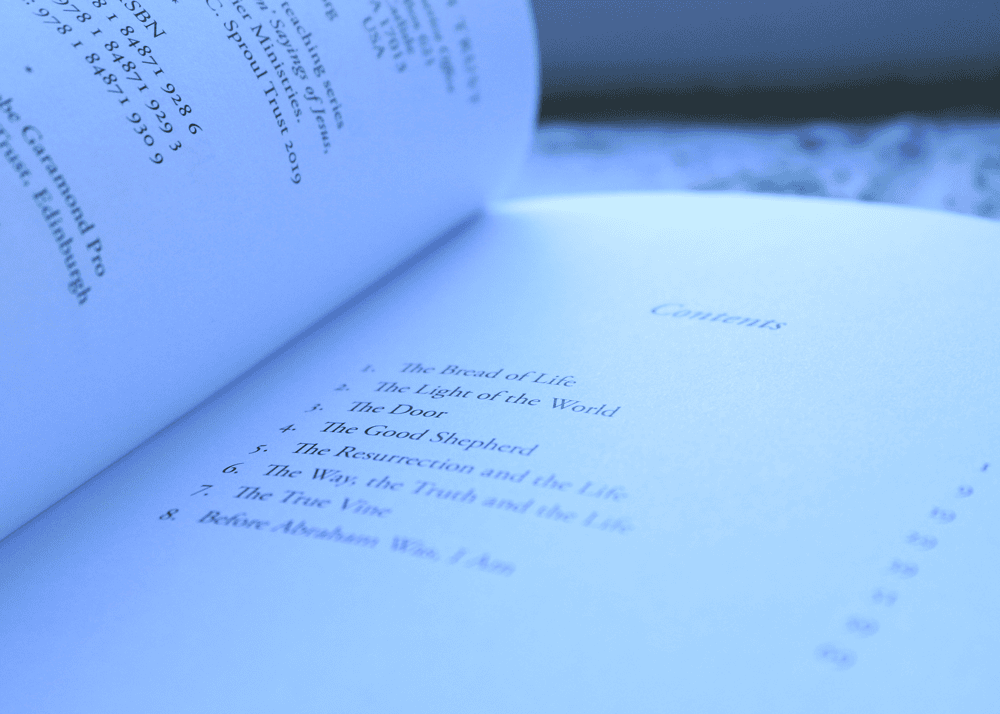 TRUST
Office
A 17013
USA
org
teaching series
Sayings of Jesus,
Ministries.
C. Sproul Trust 2019
ISBN
978 1 84871 928 6
978 1 84871 929 3
: 978 1 84871 930 9
be Garamond Pro
Trust, Edinburgh
Contents
1. The Bread of Life 1
2. The Light of the World 9
3. The Door
4. The Good Shepherd
5. The Resurrection and the Life
6. The Way, the Truth and the Life
7. The True Vine
8. Before Abraham Was, I Am